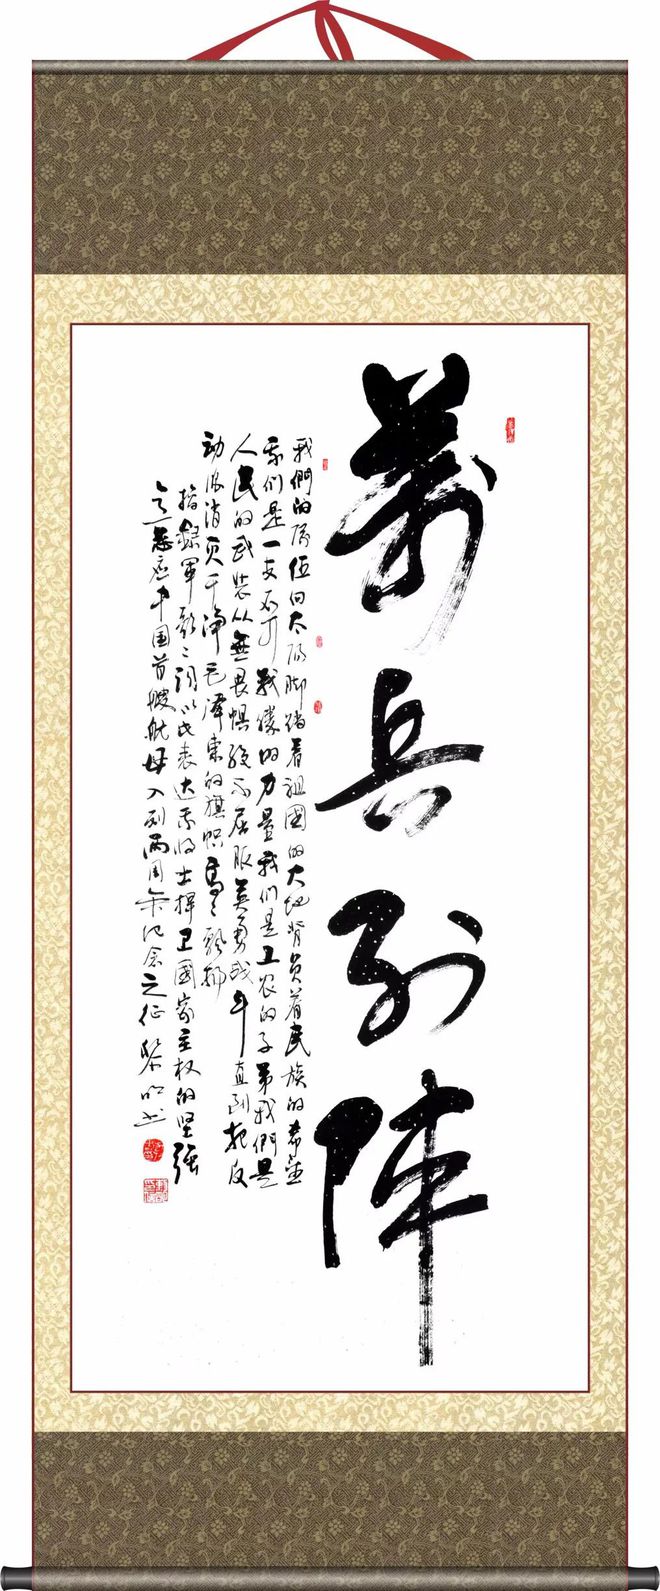 萬兵列陣
我們的队伍向太阳脚踏着祖國的大地背负着民族的希望
我们是一支不可戰勝的力量我们是工农的子弟我們是
人民的武装从無畏惧绝不屈服英勇战斗直到把反
动派消灭干净毛澤東的旗帜高々飘扬
摘録軍歌之词以此表达我将士捍卫國家主权的坚强
意志应中国首艘航母入列两周年纪念之征